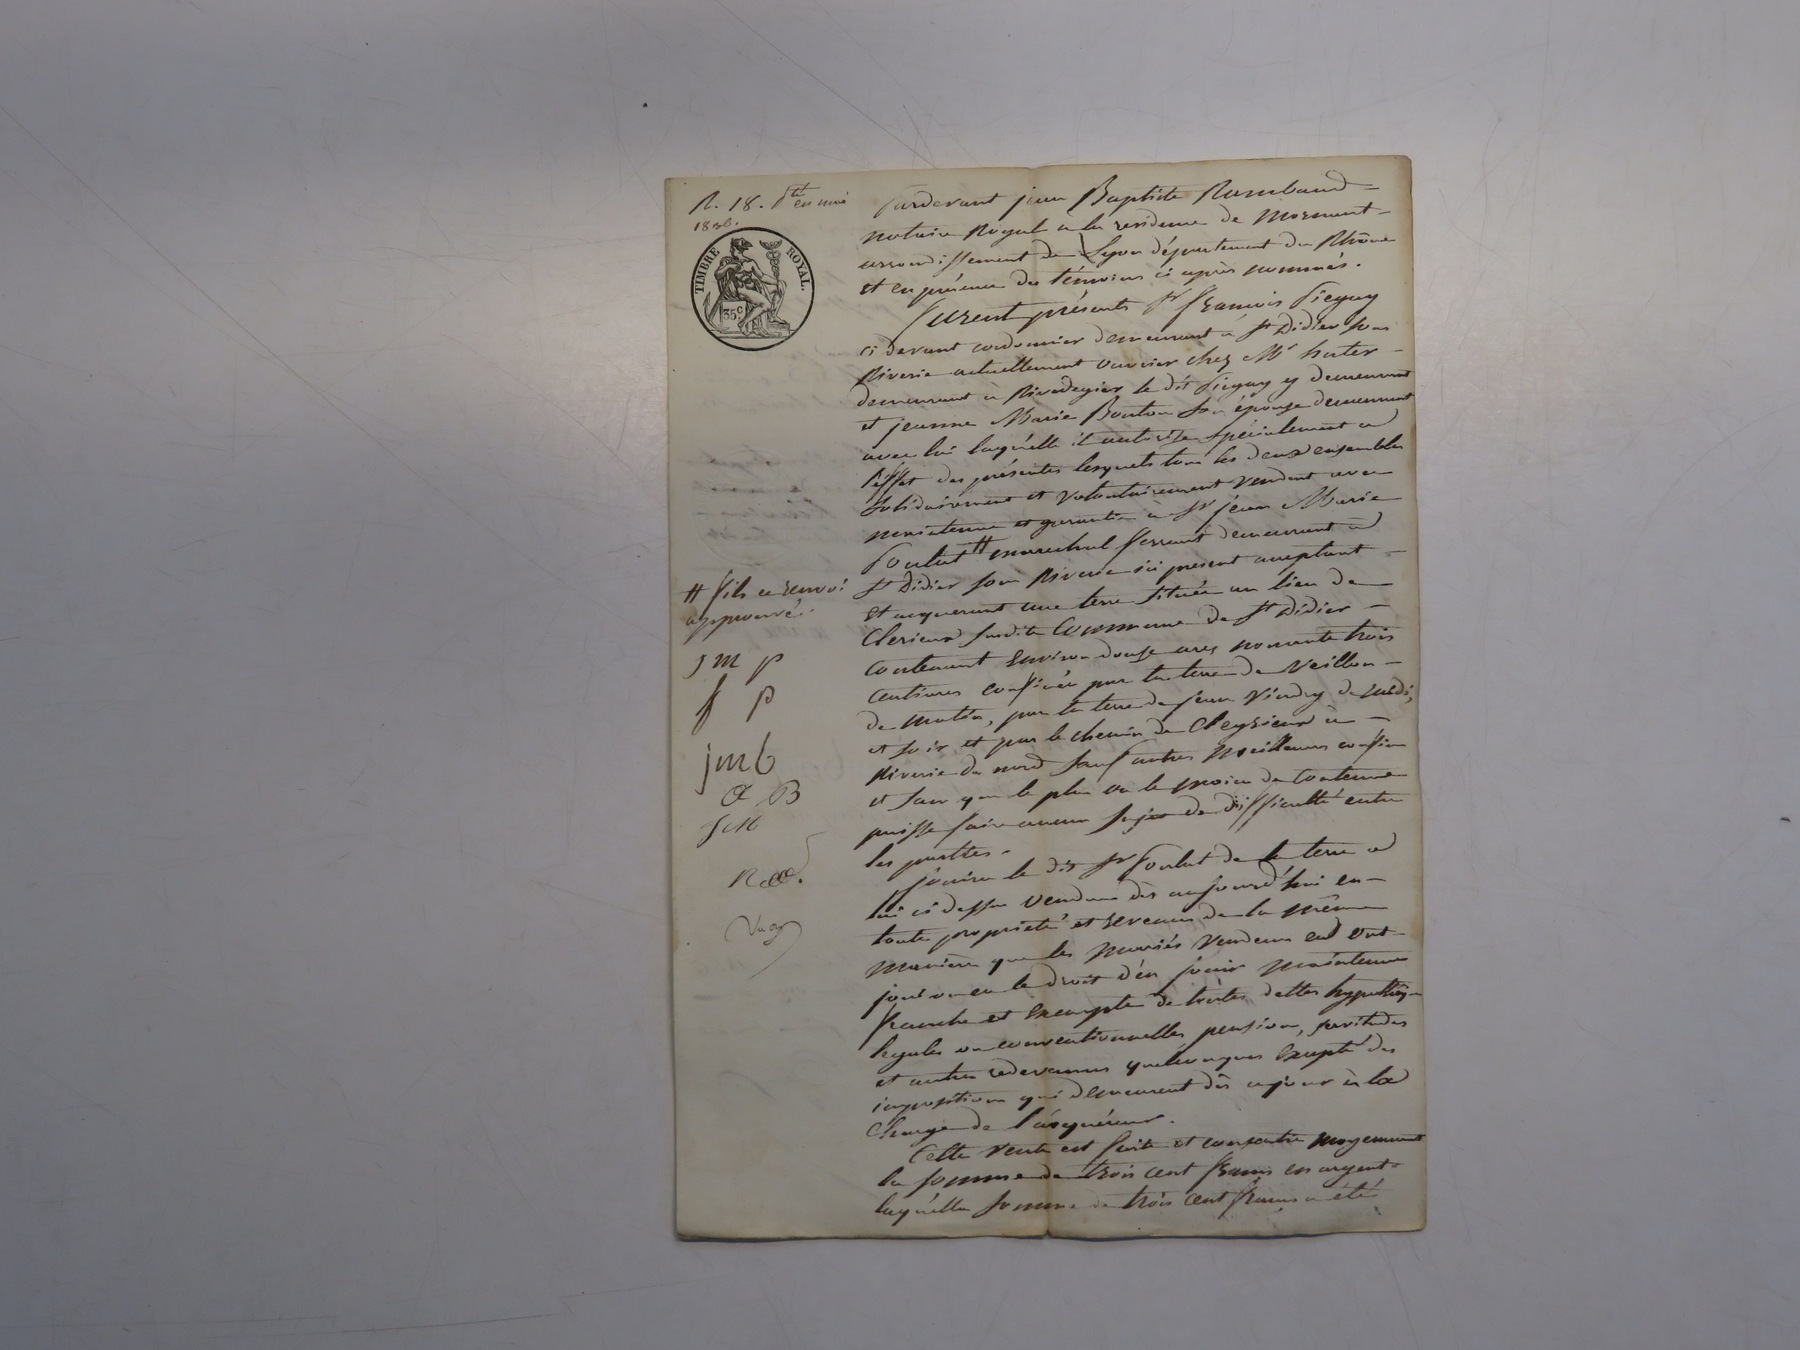 R. 18.
1836.
TIMBRE ROYAL.
35 c
Pardevant jean Baptiste Rambaud
notaire Royal a la residence de Mornant
arrondissement de Lyon département du Rhône
et en présence des témoins ci après nommés.
furent présents Sr francois Piegay
ci devant cordonnier demeurant a St Didier sous
Riverie actuellement ouvrier chez Mr
demeurant a Rivedegier le dit Piegay y demeurant
et jeanne Marie Bouton son épouse demeurant
avec lui laquelle il autorise spécialement a
l'effet des présentes lesquels tous les deux ensembles
solidairement et volontairement vendent avec
maintenue et garantie a Sr jean Marie
# marechal ferrant demeurant a
St Didier sous Riverie ici present acceptant
et acquerant une terre située au lieu de
Clerieux susdite Commune de St Didier
contenant environ douze ares nonante trois
centiares confinée par la terre de Veillon
de matin, par la terre de jean Vindry de midi,
et soir et par le chemin de Cleyrieux a
Riverie de nord sauf autres meilleurs confins
et sans que le plus ou le moins de Contenue
puisse faire aucun sujet de difficulté entre
les parties.
jouira le dit Sr de la terre a
lui ci dessus vendue dès aujourd'hui en
toute propriété et revenus de la même
manière que les mariés vendeurs en ont
joui ou eu le droit d'en jouir maintenue
franche et exempte de toutes dettes hypothèques
legales ou conventionnelles pension, servitudes
et autres redevances quelconques excepté des
impositions qui demeurent dès ce jour à la
Charge de l'acquéreur.
Cette vente est faite et consentie moyennant
la somme de trois cent francs en argent
laquelle somme de trois cent francs a étés
# fils ce renvoi
approuvé.
J M P
f P
jmb
a B